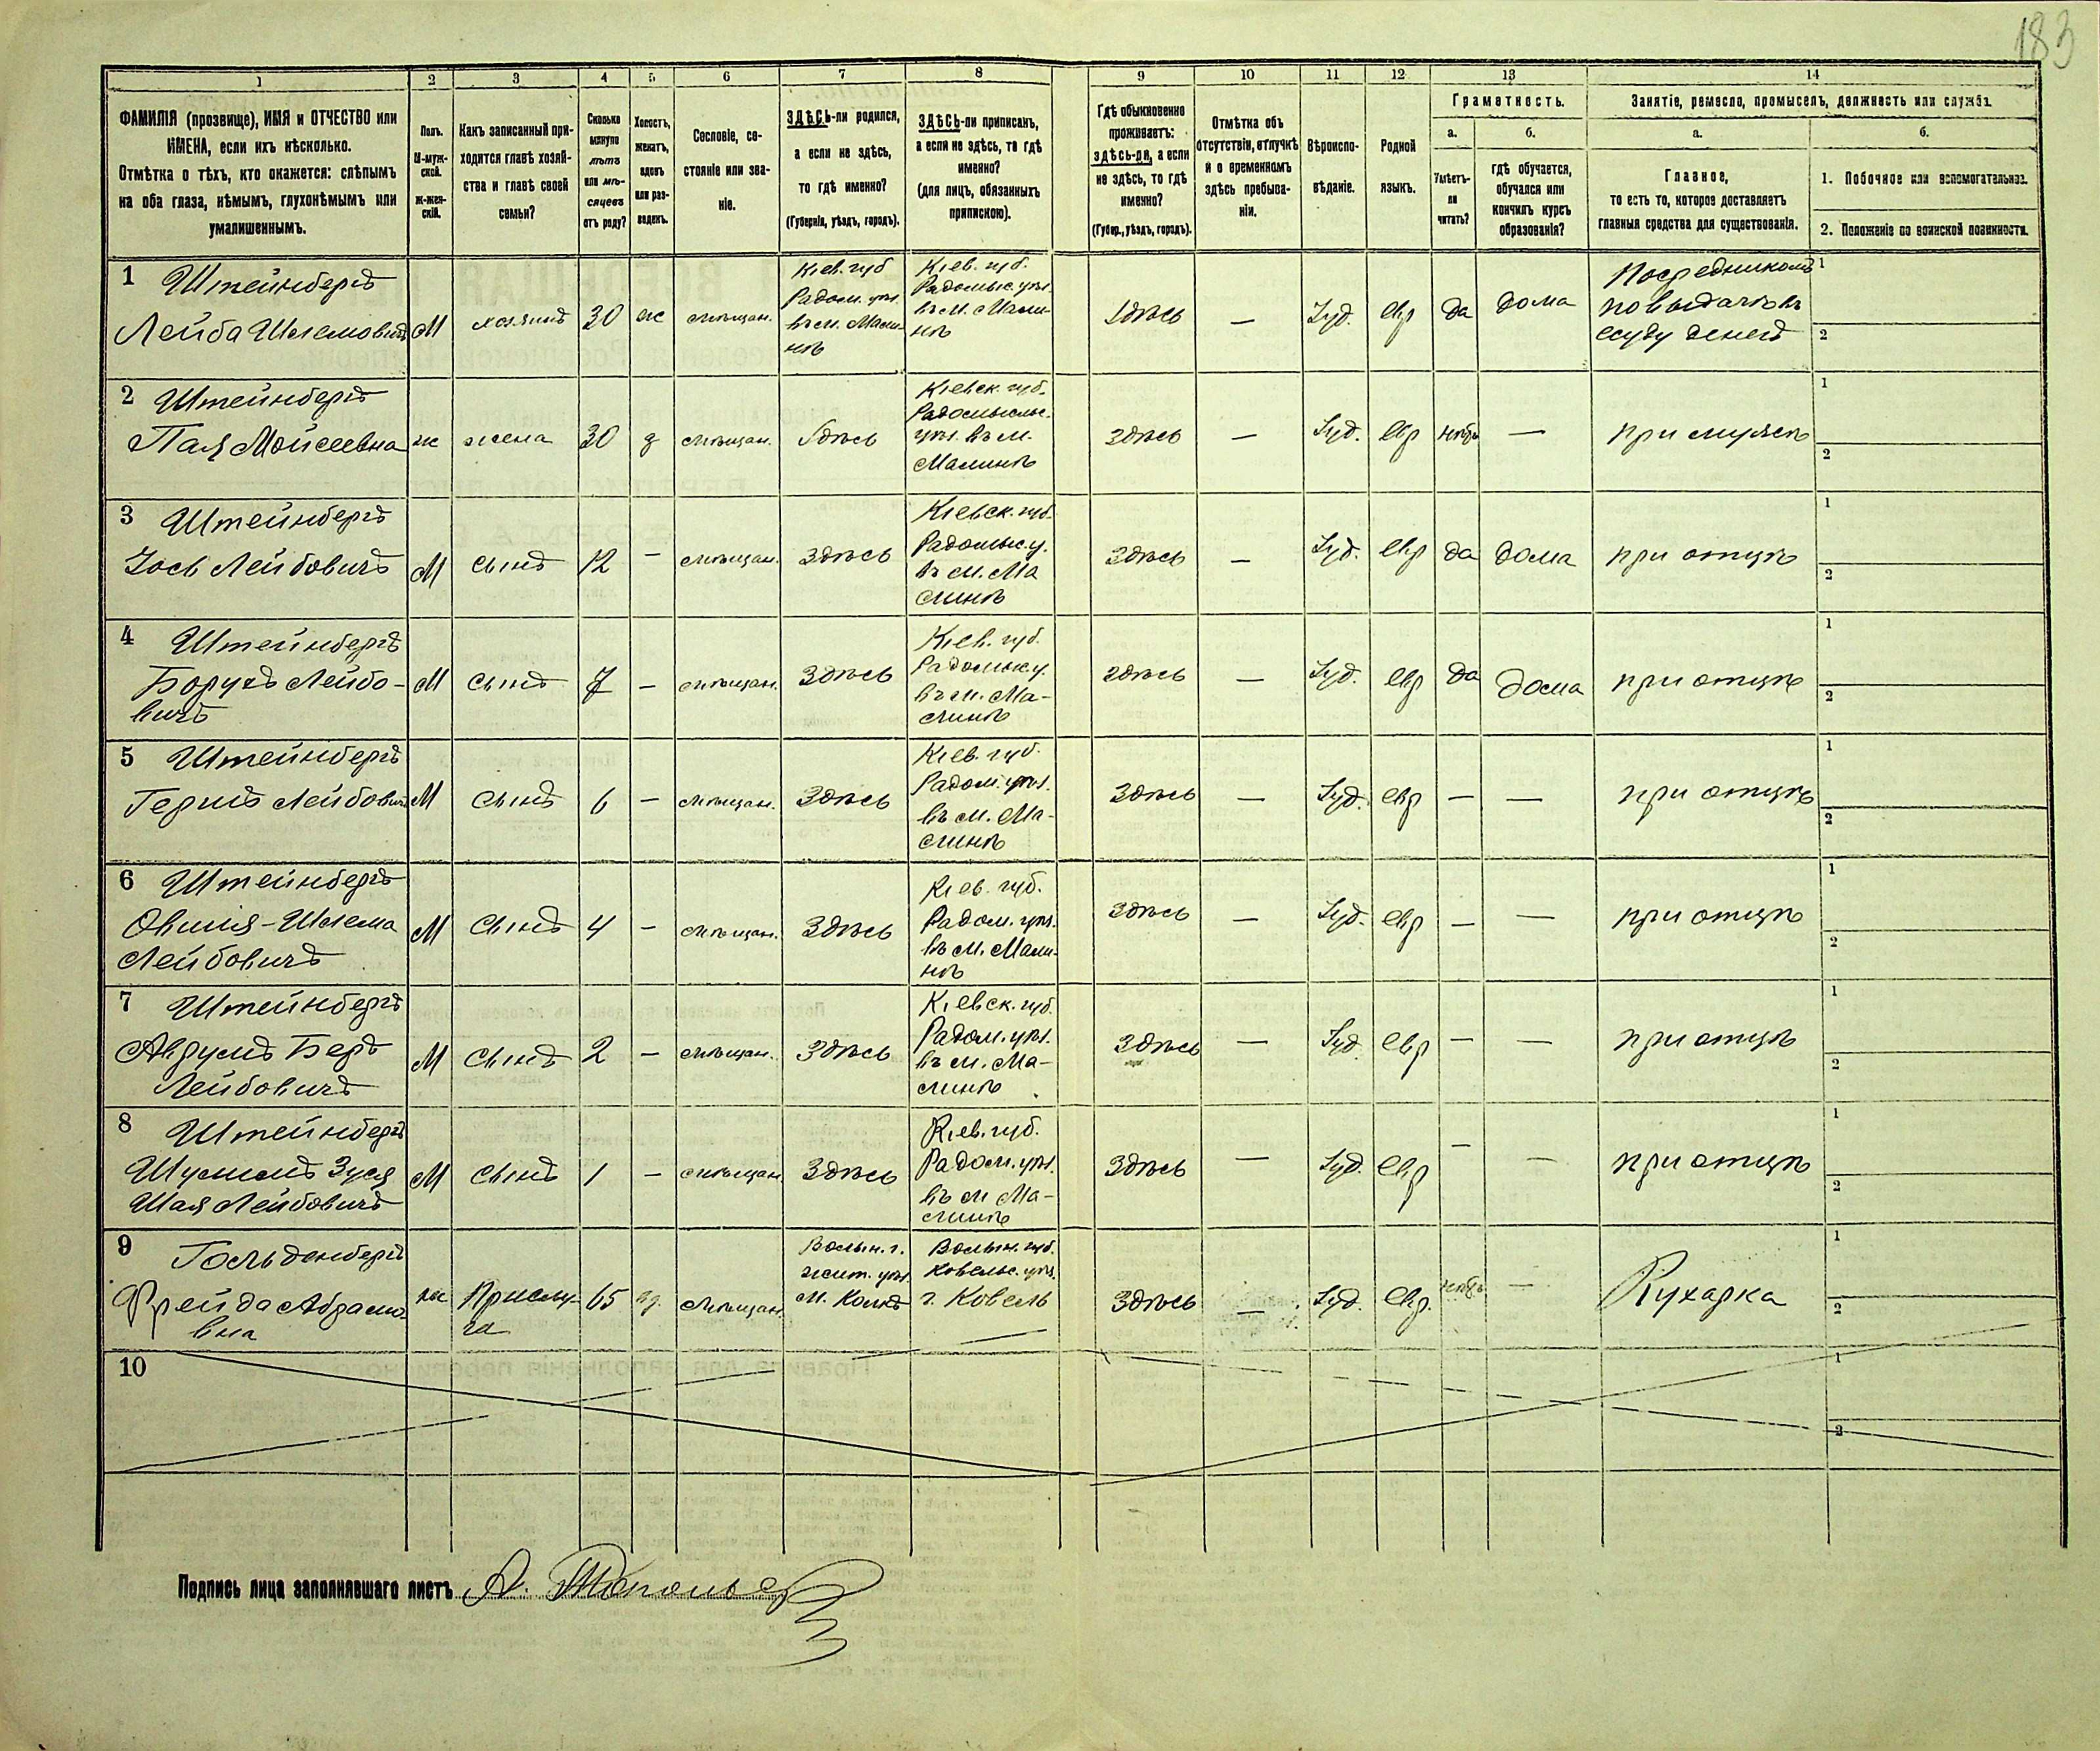 183
1 2 3 4 5 6 7 8 9 10 11 12 13 14
ФАМИЛІЯ (прозвище), ИМЯ и ОТЧЕСТВО или
ИМЕНА, если ихъ нѣсколько.
Отмѣтка о тѣхъ, кто окажется: слѣпымъ
на оба глаза, нѣмымъ, глухонѣмымъ или
умалишеннымъ.
Полъ.
М-муж-
ской.
Ж-жен-
скій.
Какъ записанный при-
ходится главѣ хозяй-
ства и главѣ своей
семьи?
Сколько
минуло
лѣтъ
или мѣ-
сяцевъ
отъ роду?
Холостъ,
женатъ,
вдовъ
или раз-
веденъ.
Сословіе, со-
стояніе или зва-
ніе.
ЗДѢСЬ-ли родился,
а если не здѣсь,
то гдѣ именно?
(Губернія, уѣздъ, городъ).
ЗДѢСЬ-ли приписанъ,
а если не здѣсь, то гдѣ
именно?
(для лицъ, обязанныхъ
припискою).
Гдѣ обыкновенно
проживаетъ:
здѣсь-ли, а если
не здѣсь, то гдѣ
именно?
(Губер., уѣздъ, городъ).
Отмѣтка объ
отсутствіи, отлучкѣ
и о временномъ
здѣсь пребыва-
ніи.
Вѣроиспо-
вѣданіе.
Родной
языкъ.
Грамотность.
а.
Умѣетъ-
ли
читать?
б.
гдѣ обучается,
обучался или
кончилъ курсъ
образованія?
Занятіе, ремесло, промыселъ, должность или служба.
а.
Главное,
то есть то, которое доставляетъ
главныя средства для существованія.
б.
1. Побочное или вспомогательное.
2. Положеніе по воинской повинности.
1 Штейнбергъ
Лейба Шлемовичъ
М
хозяинъ
30
ж
мѣщан.
Кіев. губ
Радом. уѣз.
въ м. Мали-
нѣ
Кіев. губ.
Радомыс. уѣз.
въ м. Мали-
нѣ
Здѣсь
—
Іуд.
евр
да
дома
Посредникомъ
по выдачѣ въ
ссуду денегъ
1
2
2 Штейнбергъ
Пая Мойсеевна
ж
жена
30
з
мѣщан.
Здѣсь
Кіевск. губ.
Радомысльс.
уѣз. въ м.
Малинѣ
здѣсь
—
Іуд.
евр
нѣтъ
—
при мужѣ
1
2
3 Штейнбергъ
Іось Лейбовичъ
М
сынъ
12
—
мѣщан.
Здѣсь
Кіевск. губ.
Радомыс. у.
въ м. Ма
линѣ
Здѣсь
—
Іуд.
евр
да
дома
при отцѣ
1
2
4 Штейнбергъ
Борухъ Лейбо-
вичъ
М
сынъ
7
—
мѣщан.
Здѣсь
Кіев. губ.
Радомыс у.
въ м. Ма-
линѣ
здѣсь
—
Іуд.
евр
да
дома
при отцѣ
1
2
5 Штейнбергъ
Гершъ Лейбович
М
сынъ
6
—
мѣщан.
Здѣсь
Кіев. губ.
Радом. уѣз.
въ м. Ма-
линѣ
Здѣсь
—
Іуд.
евр
—
—
при отцѣ
1
2
6 Штейнбергъ
Овшія-Шлема
Лейбовичъ
М
сынъ
4
—
мѣщан.
Здѣсь
Кіев. губ.
Радом. уѣз.
въ м. Мали-
нѣ
Здѣсь
—
Іуд.
евр
—
—
при отцѣ
1
2
7 Штейнбергъ
Аврумъ Беръ
Лейбовичъ
М
сынъ
2
—
мѣщан.
Здѣсь
Кіевск. губ.
Радом. уѣз.
въ м. Ма-
линѣ
Здѣсь
—
Іуд
евр
—
—
при отцѣ
1
2
8 Штейнбергъ
Шулимъ Зуся
Шая Лейбовичъ
М
сынъ
1
—
мѣщан
Здѣсь
Кіев. губ.
Радом. уѣз.
въ м Ма-
линѣ
Здѣсь
—
Іуд.
евр
—
—
при отцѣ
1
2
9 Гольденбергъ
Фрейда Абрамо-
вна
ж
Прислу-
га
65
мѣщан.
Волын. г.
жит. уѣз.
м.
Волын. губ.
Ковельс. уѣз.
г. Ковель
Здѣсь
—
Іуд.
евр.
нѣтъ
—
Кухарка
1
2
10
1
2
Подпись лица заполнявшаго листъ А.